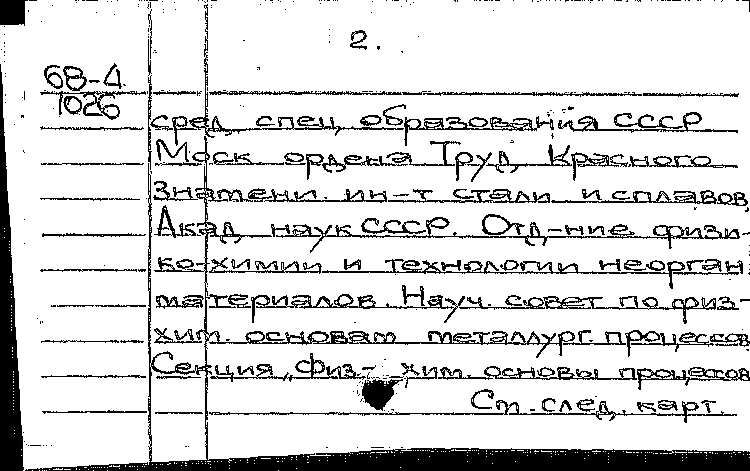 2.
68-4
1026
сред. спец. образования СССР
Моск. ордена Труд. Красного
Знамени. ин-т стали и сплавов.
Акад. наук СССР. Отд-ние физи-
ко-химии и технологии неорган.
материалов. Науч. совет по физ-
хим. основам металлург. процессов
Секция „Физ.- хим. основы процессов
См. след. карт.